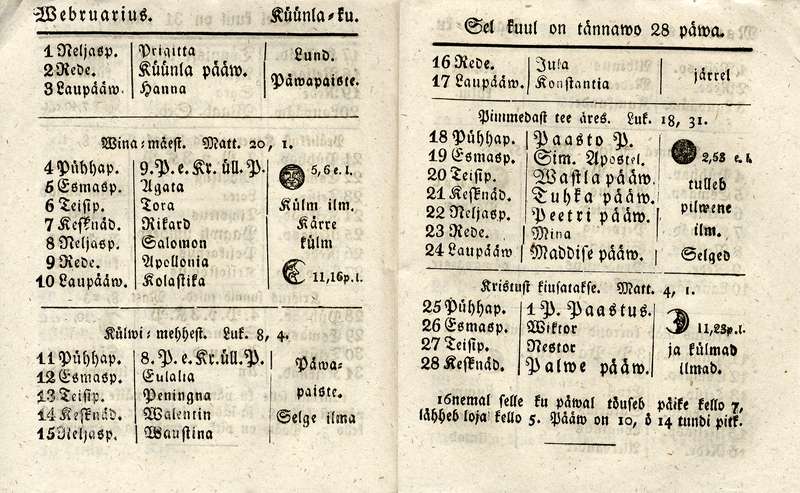 Webruarius. Küünla-ku.
1 Neljasp. Prigitta Lund.
2 Rede. Küünla pääw. Päwapaiste.
3 Laupääw. Hanna
Wina-mäest. Matt. 20, 1.
4 Pühhap. 9. P. e. Kr. üll. P. 5,6 e. l.
5 Esmasp. Agata
6 Teisip. Tora Külm ilm.
7 Kesknäd. Rikard Kärre
8 Neljasp. Salomon külm
9 Rede. Apollonia
10 Laupääw. Kolastika 11,16 p. l.
Külwi-mehhest. Luk. 8, 4.
11 Pühhap. 8. P. e. Kr. üll. P. Päwa-
12 Esmasp. Eulalia
13 Teisip. Peningna paiste.
14 Kesknäd. Walentin Selge ilma
15 Neljasp. Waustina
Sel kuul on tännawo 28 päwa.
16 Rede. Jula järrel
17 Laupääw. Konstantia
Pimmedast tee äres. Luk. 18, 31.
18 Pühhap. Paasto P.
19 Esmasp. Sim. Apostel. 2,58 e. l.
20 Teisip. Wastla pääw. tulleb
21 Kesknäd. Tuhka pääw. pilwene
22 Neljasp. Peetri pääw.
23 Rede. Mina ilm.
24 Laupääw Maddise pääw. Selged
Kristust kiusatakse. Matt. 4, 1.
25 Pühhap. 1 P. Paastus.
26 Esmasp. Wiktor 11,23 p. l.
27 Teisip. Nestor ja külmad
28 Kesknäd. Palwe pääw. ilmad.
16nemal selle ku päwal tõuseb päike kello 7,
lähheb loja kello 5. Pääw on 10, ö 14 tundi pitk.